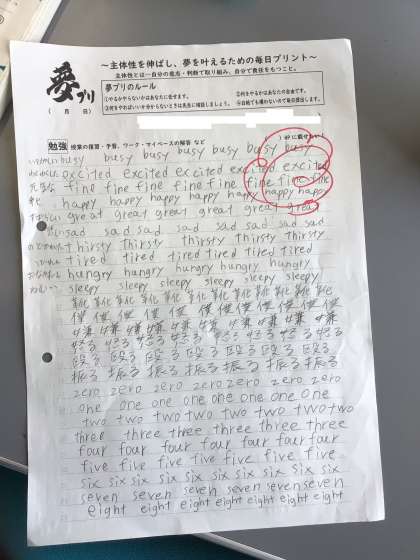 夢プリ
(　月　日)
〜主体性を伸ばし、夢を叶えるための毎日プリント〜
主体性とは…自分の意志・判断で取り組み、自分で責任をもつこと。
夢プリのルール
①やるかやらないかはあなたに任せます。 ②何をやるかはあなたの自由です。
③何をやればいいか分からないときは先生に相談しましょう。
勉強 授業の復習・予習、ワーク・マイペースの解答 など
busy busy busy busy busy busy
excited excited excited excited excited
fine fine fine fine fine fine fine fine
happy happy happy happy happy happy happy
great great great great great great
sad sad sad sad sad sad sad
thirsty thirsty thirsty thirsty thirsty
tired tired tired tired tired tired
hungry hungry hungry hungry hungry
sleepy sleepy sleepy sleepy sleepy sleepy
靴 靴 靴 靴 靴 靴 靴 靴 靴 靴
僕 僕 僕 僕 僕 僕 僕 僕 僕 僕
嫌 嫌 嫌 嫌 嫌 嫌 嫌 嫌 嫌
怒る 怒る 怒る 怒る 怒る 怒る 怒る
殴る 殴る 殴る 殴る 殴る 殴る 殴る
振る 振る 振る 振る 振る 振る 振る
zero zero zero zero zero zero zero
one one one one one one one
two two two two two two two two
three three three three three three
four four four four four four four
five five five five five five five
six six six six six six six six six
seven seven seven seven seven seven
eight eight eight eight eight eight eight